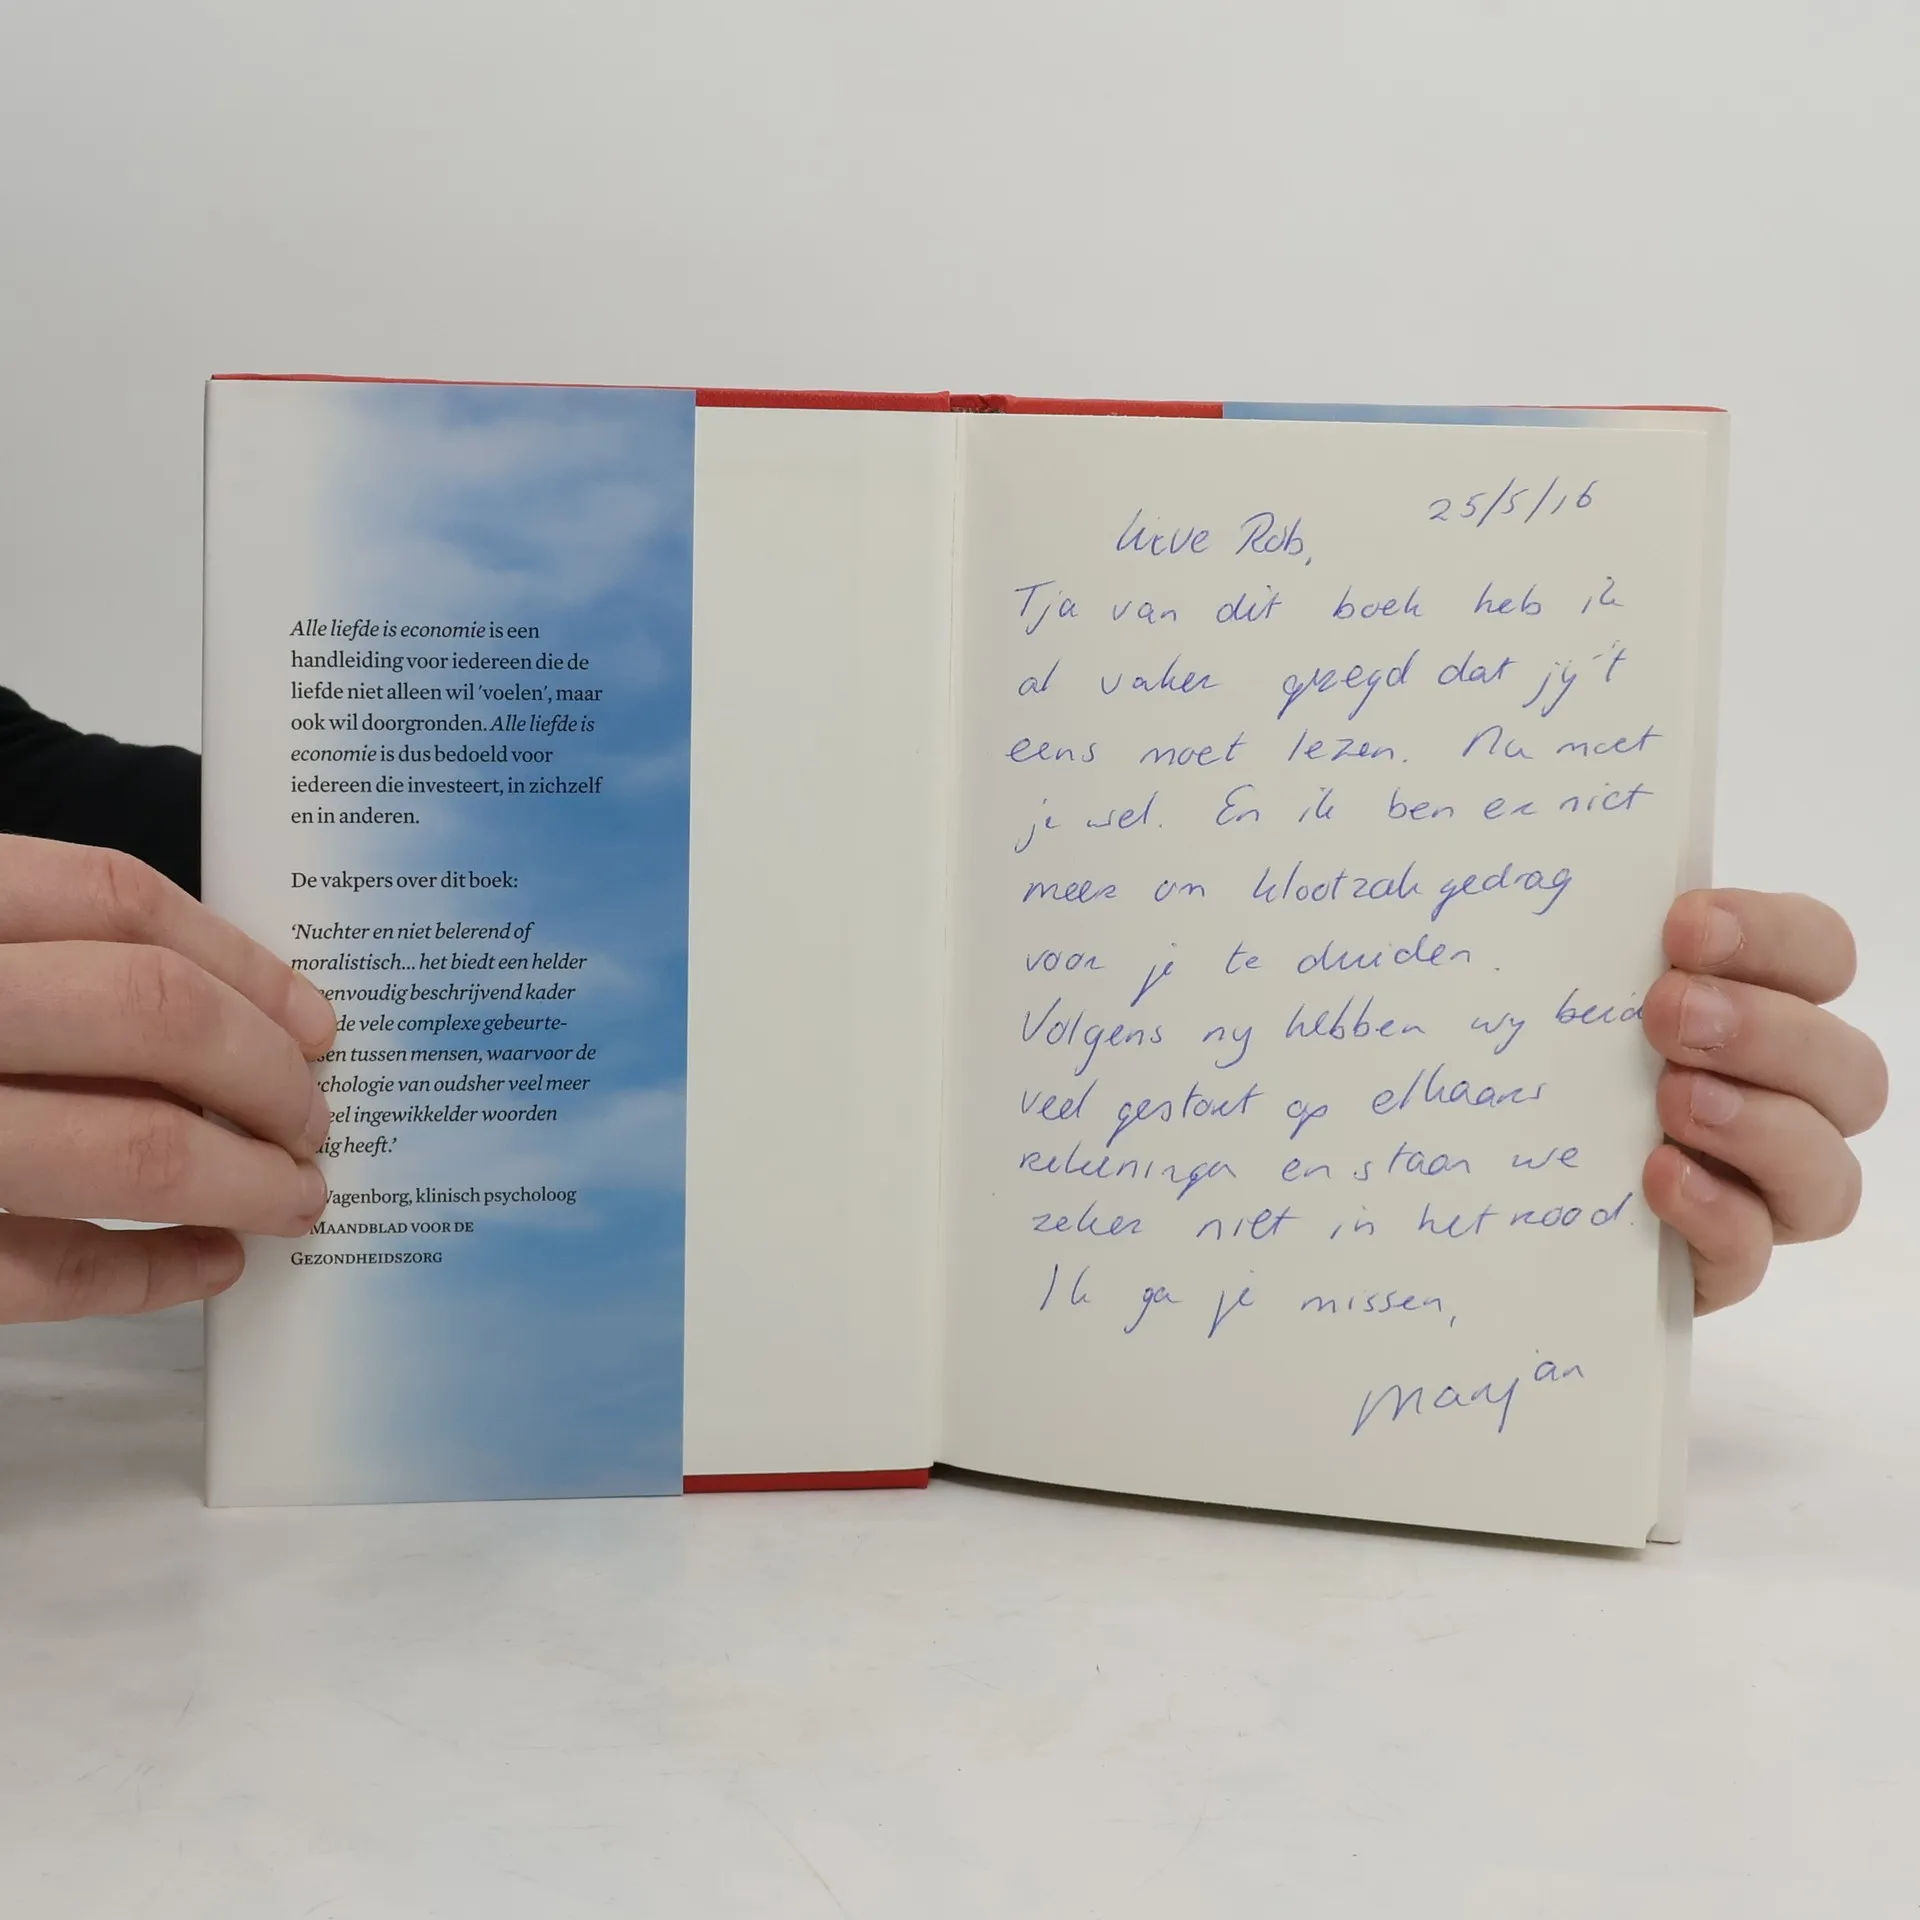 Alle liefde is economie is een
handleiding voor iedereen die de
liefde niet alleen wil 'voelen', maar
ook wil doorgronden. Alle liefde is
economie is dus bedoeld voor
iedereen die investeert, in zichzelf
en in anderen.
De vakpers over dit boek:
‘Nuchter en niet belerend of
moralistisch... het biedt een helder
envoudig beschrijvend kader
de vele complexe gebeurte-
sen tussen mensen, waarvoor de
chologie van oudsher veel meer
eel ingewikkelder woorden
ig heeft.’
Wagenborg, klinisch psycholoog
MAANDBLAD VOOR DE
GEZONDHEIDSZORG
25/5/16
Lieve Rob,
Tja van dit boek heb ik
al vaker gezegd dat jij 't
eens moet lezen. Nu moet
je wel. En ik ben er niet
meer om klootzak gedrag
voor je te duiden.
Volgens mij hebben wij beid
veel gestort op elkaars
rekeningen en staan we
zeker niet in het rood.
Ik ga je missen,
Marjan